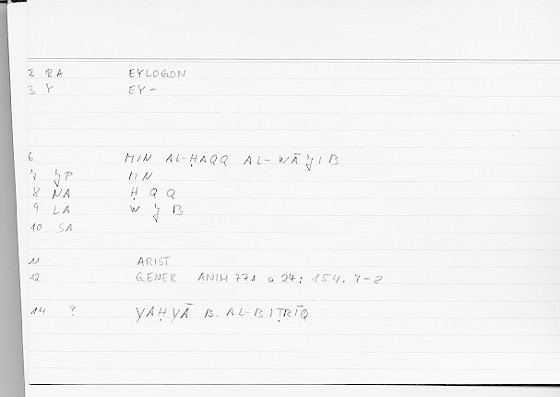 2 RA EYLOGON
3 Y EY-
6 MIN AL-ḤAQQ AL-WĀǦIB
7 ǦP MN
8 NA Ḥ Q Q
9 LA W Ǧ B
10 SA
11 ARIST
12 GENER ANIM 771 a 24: 154, 7-8
14 ? YAḤYĀ B. AL-BIṬRĪQ